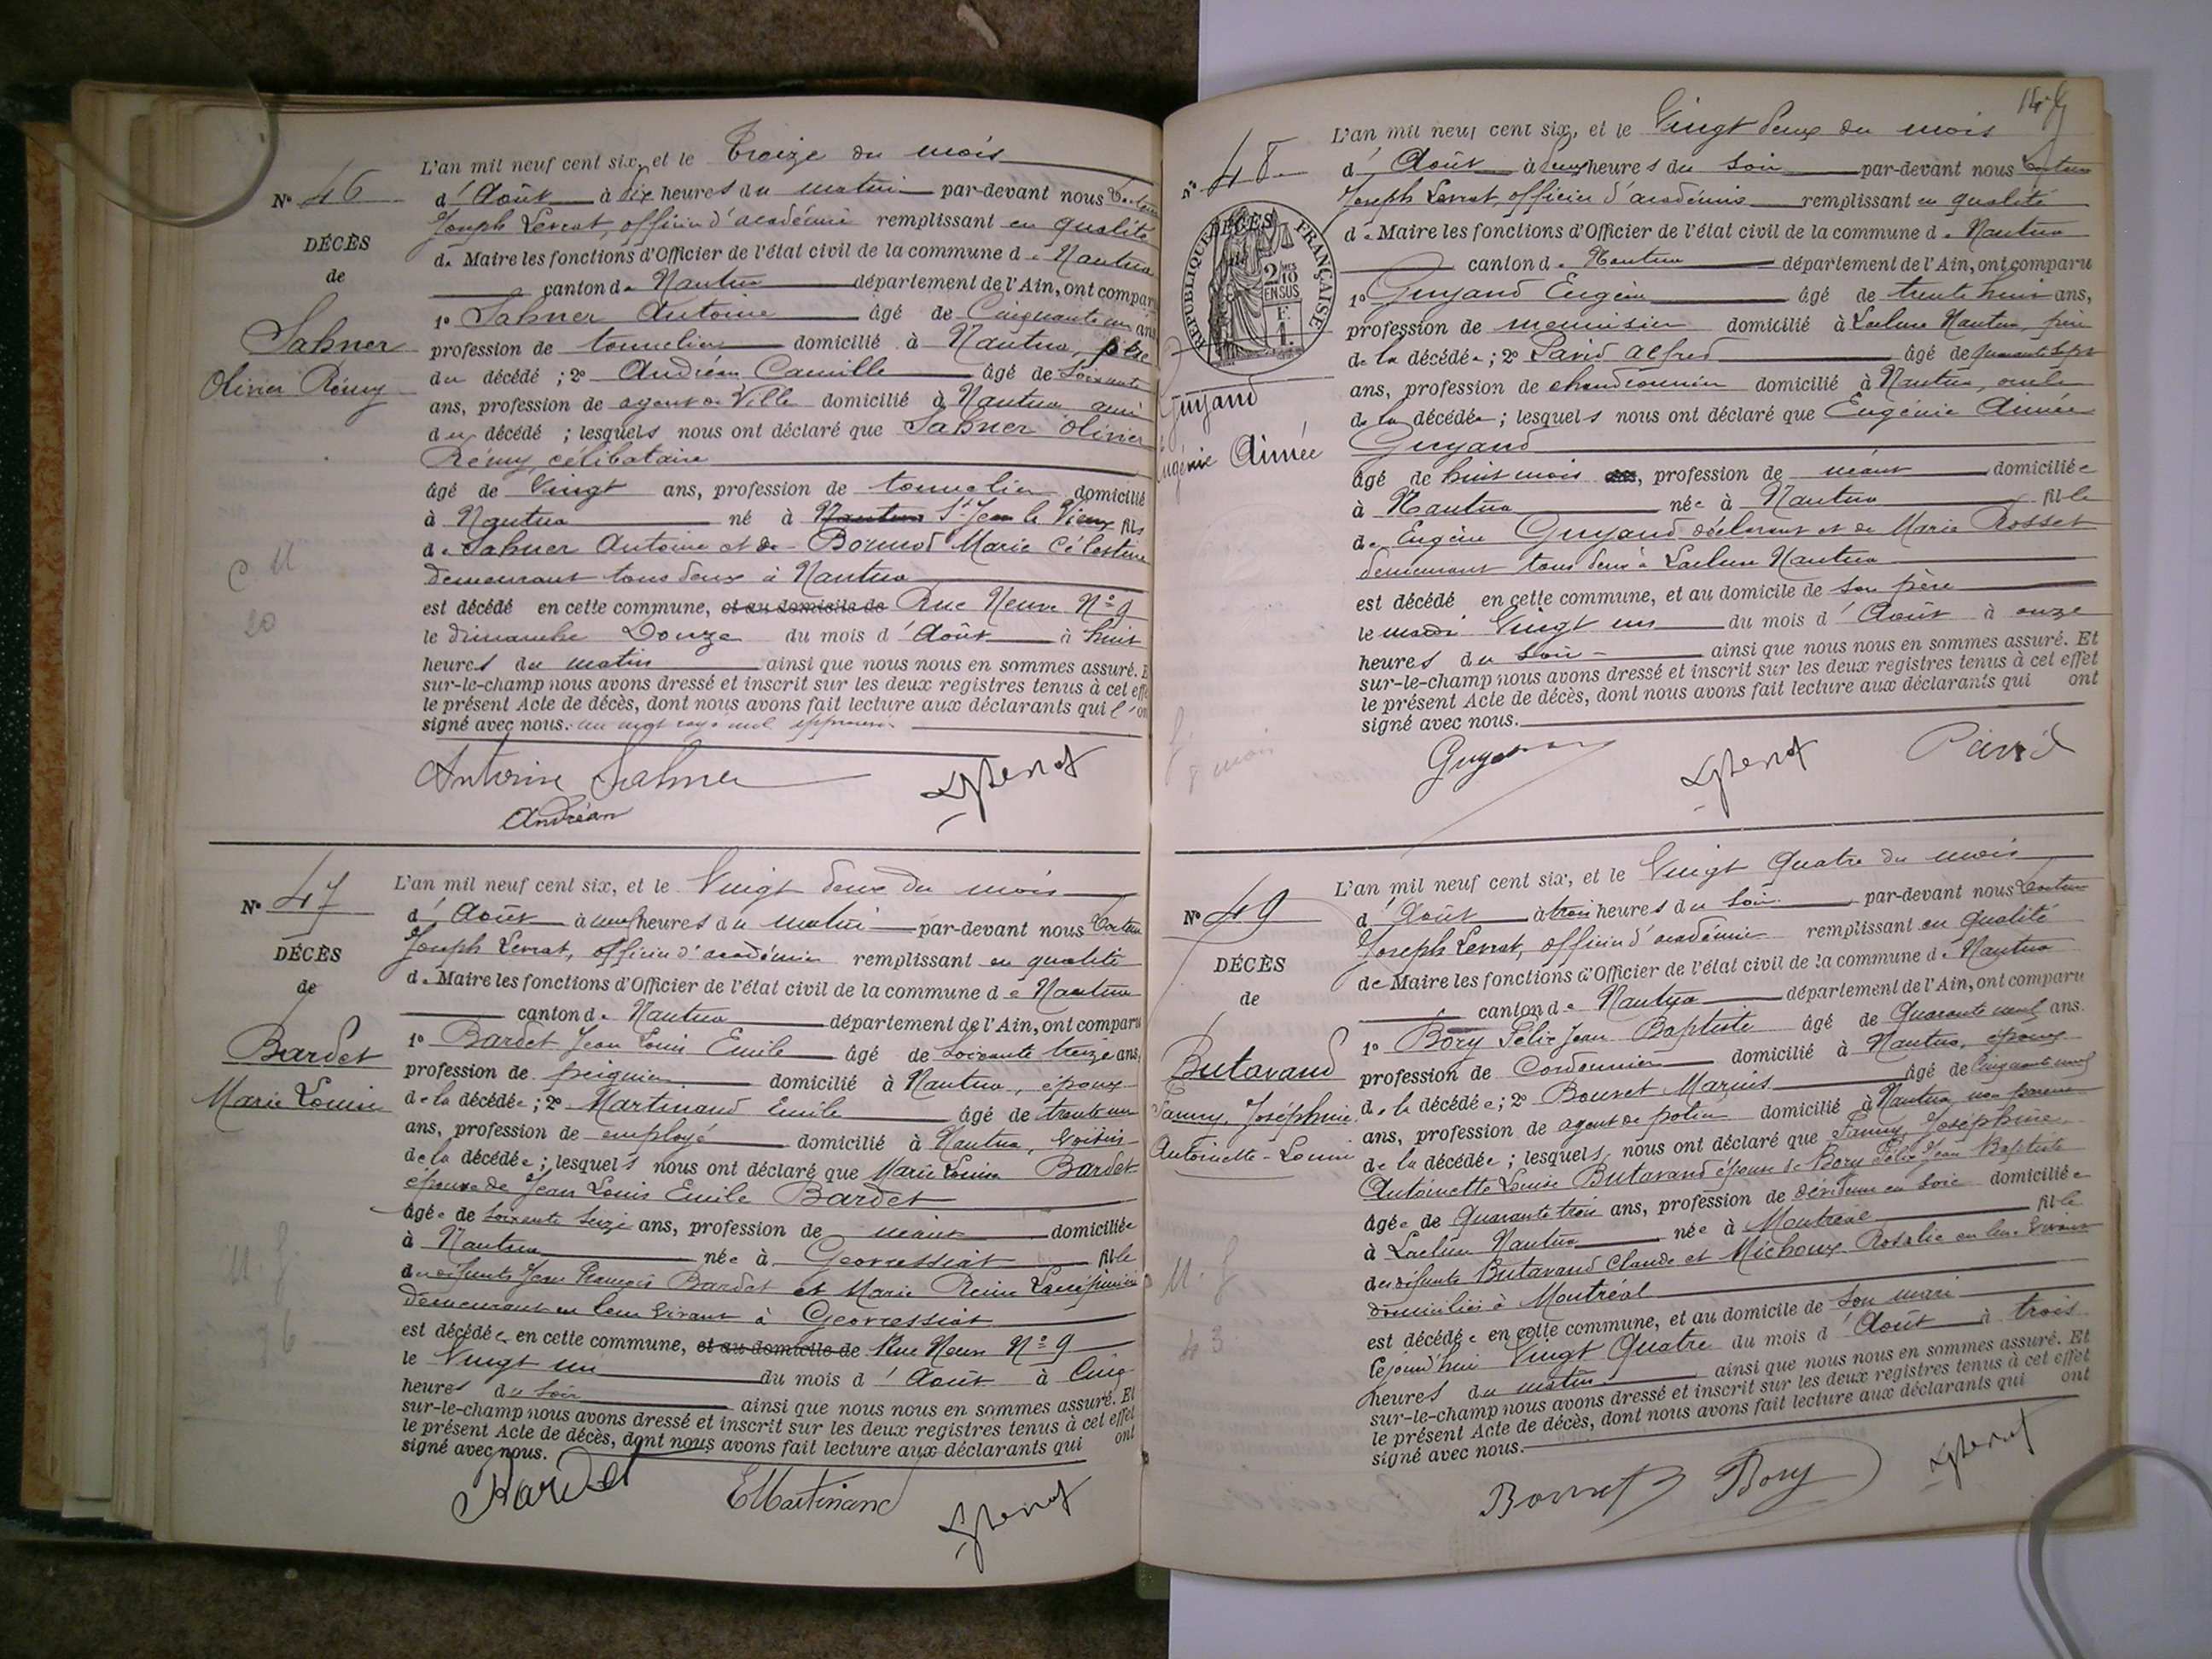 L'an mil neuf cent six, et le Treize du mois
N° 46
d'Août à dix heures du matin par-devant nous Docteur
Joseph Levrat, officier d'académie remplissant en qualité
DÉCÈS
de Maire les fonctions d'Officier de l'état civil de la commune de Nantua
de
canton de Nantua département de l'Ain, ont compar
1° Sahner Antoine âgé de Cinquante un ans
Sahner
Olivier Rémy
profession de tonnelier domicilié à Nantua, père
du décédé ; 2° Andréan Camille âgé de Soixante
ans, profession de agent de Ville domicilié à Nantua ami
du décédé ; lesquels nous ont déclaré que Sahner Olivier
Rémy, célibataire
âgé de Vingt ans, profession de tonnelier domicilié
à Nantua né à Nantua St Jean le Vieux fils
de Sahner Antoine et de Marie Célestine
demeurant tous deux à Nantua
C M
20
est décédé en cette commune, et au domicile de Rue Neuve N° 9
le dimanche Douze du mois d'Août à huit
heures du matin ainsi que nous nous en sommes assuré. E
sur-le-champ nous avons dressé et inscrit sur les deux registres tenus à cet effe
le présent Acte de décès, dont nous avons fait lecture aux déclarants qui l'on
signé avec nous. un mot rayé nul approuvé
Antoine Sahner
Andréan
L'an mil neuf cent six, et le Vingt deux du mois
N° 47
d'Août à neuf heures du matin par-devant nous Docteur
Joseph Levrat, officier d'académie remplissant en qualité
DÉCÈS
de Maire les fonctions d'Officier de l'état civil de la commune de Nantua
de
canton de Nantua département de l'Ain, ont comparu
Bardet
Marie Louise
1° Bardet Jean Louis Emile âgé de Soixante treize ans,
profession de peignier domicilié à Nantua, époux
de la décédée ; 2° Martinand Emile âgé de trente un
ans, profession de employé domicilié à Nantua, Voisin
de la décédée ; lesquels nous ont déclaré que Marie Louise Bardet
épouse de Jean Louis Emile Bardet
âgée de Soixante Seize ans, profession de néant domiciliée
à Nantua née à Geovressiat fille
de défunts Jean François Bardet et Marie Reine
demeurant en leur vivant à Geovressiat
M. f
76
est décédée en cette commune, et au domicile de Rue Neuve N° 9
le Vingt un du mois d'Août à Cinq
heures du Soir ainsi que nous nous en sommes assuré. Et
sur-le-champ nous avons dressé et inscrit sur les deux registres tenus à cet effet
le présent Acte de décès, dont nous avons fait lecture aux déclarants qui ont
signé avec nous.
Bardet
EMartinand
L'an mil neuf cent six, et le Vingt deux du mois
N° 48
d'Août à heures du Soir par-devant nous Docteur
Joseph Levrat, officier d'académie remplissant en qualité
DÉCÈS
RÉPUBLIQUE FRANÇAISE
2/10 MES
EN SUS
F.
1.
de Maire les fonctions d'Officier de l'état civil de la commune de Nantua
canton de Nantua département de l'Ain, ont comparu
1° Guyand Eugène âgé de trente huit ans,
profession de menuisier domicilié à Lacluse Nantua, père
de la décédée ; 2° David Alfred âgé de quarante Sept
Guyand
Eugénie Aimée
ans, profession de chaudronnier domicilié à Nantua, oncle
de la décédée ; lesquels nous ont déclaré que Eugénie Aimée
Guyand
âgé de huit mois ans, profession de néant domiciliée
à Nantua née à Nantua fille
de Eugène Guyand déclarant et de Marie Rosset
demeurant tous deux à Lacluse Nantua
est décédé en cette commune, et au domicile de Son père
le mardi Vingt un du mois d'Août à onze
heures du Soir ainsi que nous nous en sommes assuré. Et
sur-le-champ nous avons dressé et inscrit sur les deux registres tenus à cet effet
le présent Acte de décès, dont nous avons fait lecture aux déclarants qui ont
signé avec nous.
8 mois
Guyand
David
L'an mil neuf cent six, et le Vingt Quatre du mois
N° 49
d'Août à trois heures du Soir par-devant nous Docteur
Joseph Levrat, officier d'académie remplissant en qualité
DÉCÈS
de Maire les fonctions d'Officier de l'état civil de la commune de Nantua
de
canton de Nantua département de l'Ain, ont comparu
Butavand
Fanny, Joséphine
Antoinette-Louise
1° Bory Félix Jean Baptiste âgé de Quarante neuf ans.
profession de Cordonnier domicilié à Nantua, époux
de la décédée ; 2° Bouvet Marius âgé de Cinquante neuf
ans, profession de agent de police domicilié à Nantua, non parent
de la décédée ; lesquels nous ont déclaré que Fanny, Joséphine,
Antoinette Louise Butavand épouse de Bory Félix Jean Baptiste
âgée de Quarante trois ans, profession de dévideuse en Soie domiciliée
à Lacluse Nantua née à Montréal fille
des défunts Butavand Claude et Michoux Rosalie en leur Vivant
domiciliés à Montréal
M. f
43
est décédée en cette commune, et au domicile de Son mari
Cejourd'hui Vingt Quatre du mois d'Août à trois
heures du matin ainsi que nous nous en sommes assuré. Et
sur-le-champ nous avons dressé et inscrit sur les deux registres tenus à cet effet
le présent Acte de décès, dont nous avons fait lecture aux déclarants qui ont
signé avec nous.
Bouvet
Bory